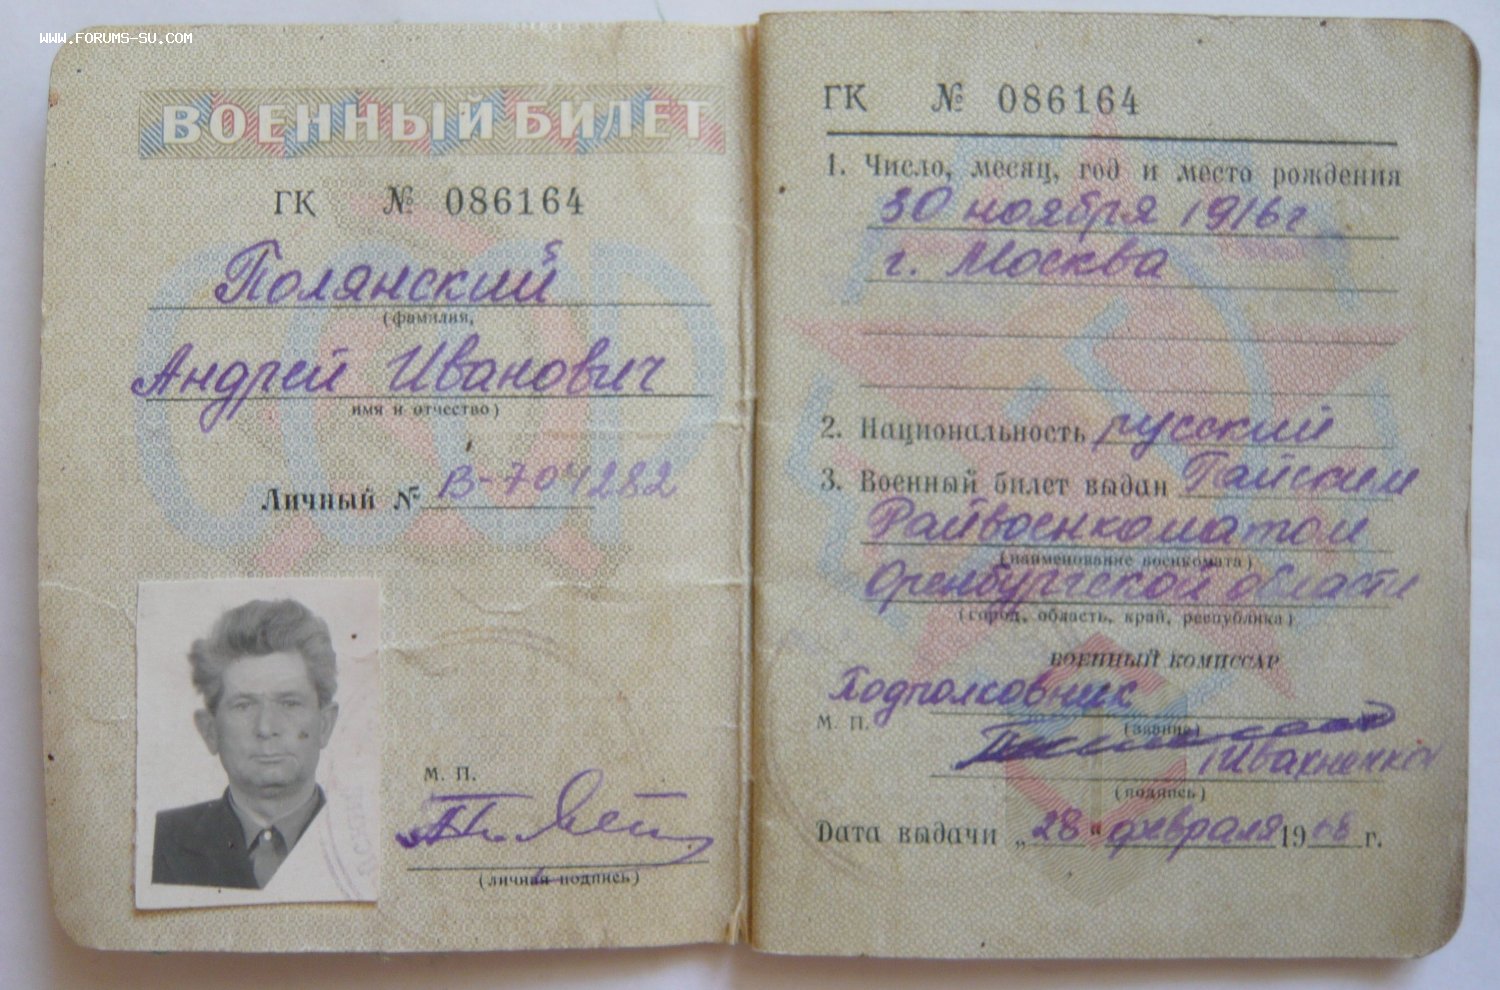 WWW.FORUMS-SU.COM
ВОЕННЫЙ БИЛЕТ
ГК № 086164
Полянский
(фамилия,
Андрей Иванович
имя и отчество)
Личный № В-704282
М. П.
(личная подпись)
ГК № 086164
1. Число, месяц, год и место рождения
30 ноября 1916 г
г. Москва
2. Национальность русский
3. Военный билет выдан Гайским
Райвоенкоматом
(наименование военкомата)
Оренбургской области
(город, область, край, республика)
ВОЕННЫЙ КОМИССАР
Подполковник
М. П.
(звание)
(подпись)
Дата выдачи „28" февраля 1968 г.